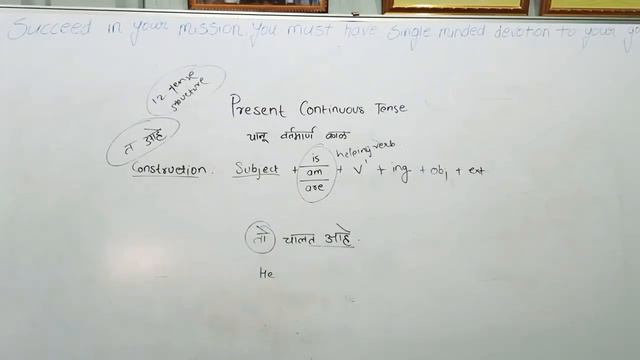 Succeed in your mission you must have single minded devotion to your
12 tense structure
Present Continuous Tense
त आहे
चालू वर्तमाण काळ
helping verb
is
Construction. Subject + am + V' + ing + obj + ext
are
तो चालत आहे.
He